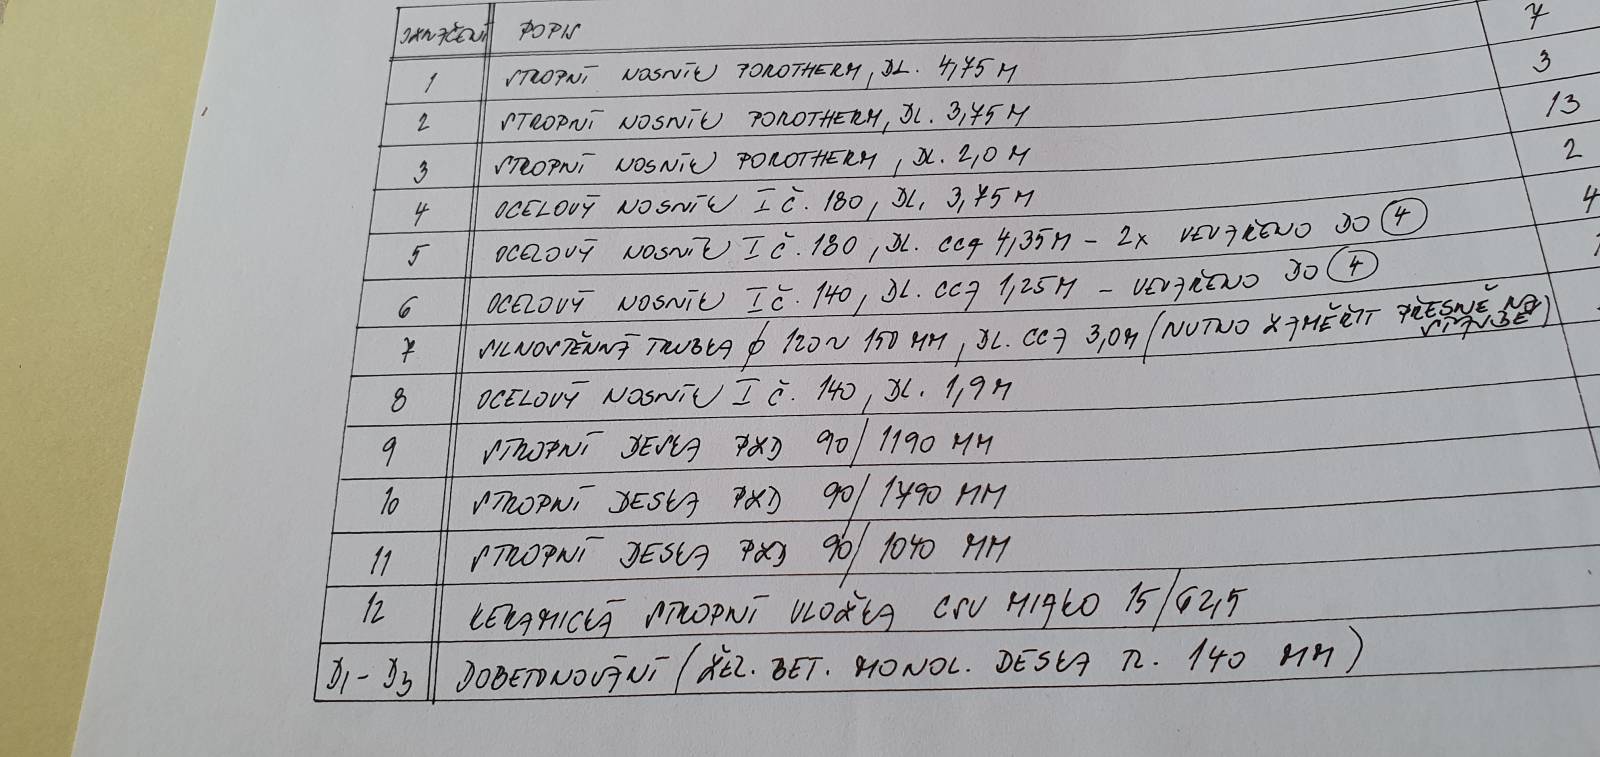 OZNAČENÍ POPIS
1 STROPNÍ NOSNÍK POROTHERM, DL. 4,75 M 7
2 STROPNÍ NOSNÍK POROTHERM, DL. 3,75 M 3
3 STROPNÍ NOSNÍK POROTHERM, DL. 2,0 M 13
4 OCELOVÝ NOSNÍK I Č. 180, DL. 3,75 M 2
5 OCELOVÝ NOSNÍK I Č. 180, DL. CCA 4,35 M – 2X VEVAŘENO DO 4 4
6 OCELOVÝ NOSNÍK I Č. 140, DL. CCA 1,25 M – VEVAŘENO DO 4
7 SILNOSTĚNNÁ TRUBKA ϕ 120 ~ 150 MM, DL. CCA 3,0 M (NUTNO ZAMĚŘIT PŘESNĚ NA
STAVBĚ)
8 OCELOVÝ NOSNÍK I Č. 140, DL. 1,9 M
9 STROPNÍ DESKA PZD 90/1190 MM
10 STROPNÍ DESKA PZD 90/1790 MM
11 STROPNÍ DESKA PZD 90/1040 MM
12 KERAMICKÁ STROPNÍ VLOŽKA CSV MIAKO 15/62,5
D1 – D3 DOBETONOVÁNÍ (ŽEL. BET. MONOL. DESKA TL. 140 MM)